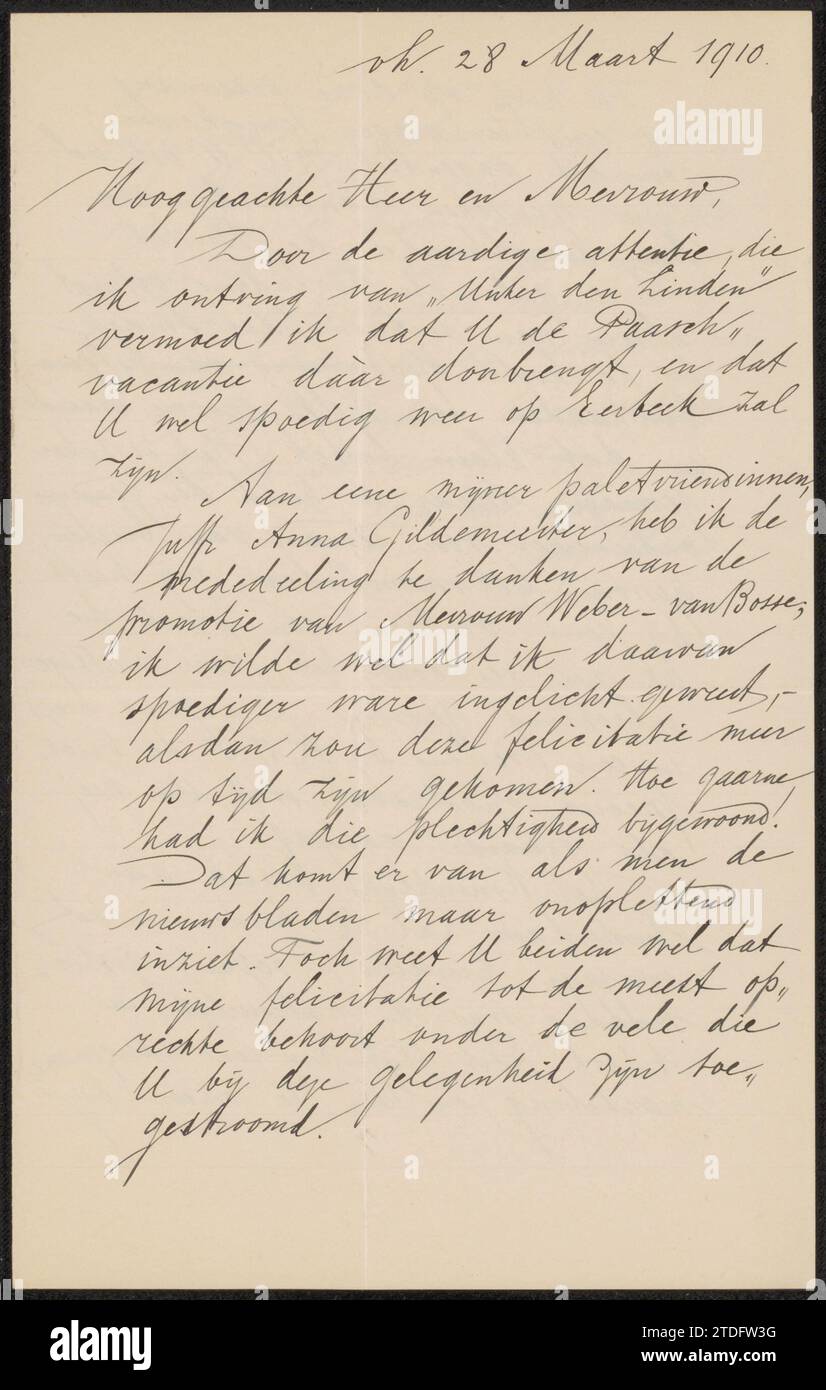 vh. 28 Maart 1910.
Hooggeachte Heer en Mevrouw,
Door de aardige attentie, die
ik ontving van „Unter den Linden"
vermoed ik dat U de Paasch„
vacantie dáàr doorbrengt, en dat
U wel spoedig weer op Eerbeek zal
zijn.
Aan eene mijner paletvriendinnen,
Juffr Anna Gildemeester, heb ik de
mededeeling te danken van de
promotie van Mevrouw Weber-van Bosse;
ik wilde wel dat ik daarvan
spoediger ware ingelicht geweest,-
alsdan zou deze felicitatie meer
op tijd zijn gekomen. Hoe gaarne
had ik die plechtigheid bijgewoond!
Dat komt er van als men de
nieuwsbladen maar onoplettend
inziet. Toch weet U beiden wel dat
mijne felicitatie tot de meest op„
rechte behoort onder de vele die
U bij deze gelegenheid zijn toe„
gestroomd.
alamy
Image ID: 2TDFW3G
www.alamy.com